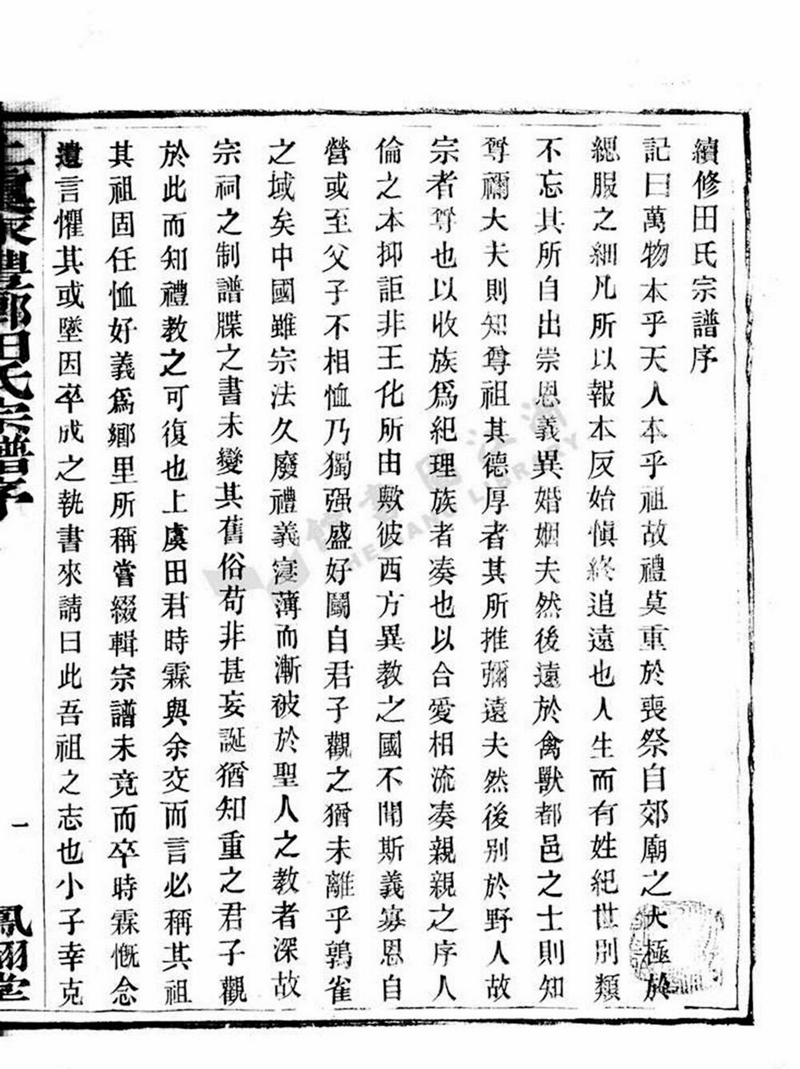 續修田氏宗譜序
記曰萬物本乎天人本乎祖故禮莫重於喪祭自郊廟之大極於
緦服之細凡所以報本反始愼終追遠也人生而有姓紀世別類
不忘其所自出崇恩義異婚姻夫然後遠於禽獸都邑之士則知
尊禰大夫則知尊祖其德厚者其所推彌遠夫然後别於野人故
宗者尊也以收族爲紀理族者凑也以合愛相流凑親親之序人
倫之本抑詎非王化所由歟彼西方異教之國不聞斯義寡恩自
營或至父子不相恤乃獨强盛好鬭自君子觀之猶未離乎鶉雀
之域矣中國雖宗法久廢禮義寖薄而漸被於聖人之教者深故
宗祠之制譜牒之書未變其舊俗苟非甚妄誕猶知重之君子觀
於此而知禮教之可復也上虞田君時霖與余交而言必稱其祖
其祖固任恤好義爲鄉里所稱嘗綴輯宗譜未竟而卒時霖慨念
遺言懼其或墜因卒成之執書來請曰此吾祖之志也小子幸克
上虞永豐鄉田氏宗譜序
一
鳳翊堂
浙江圖書館
ZHEJIANG LIBRARY